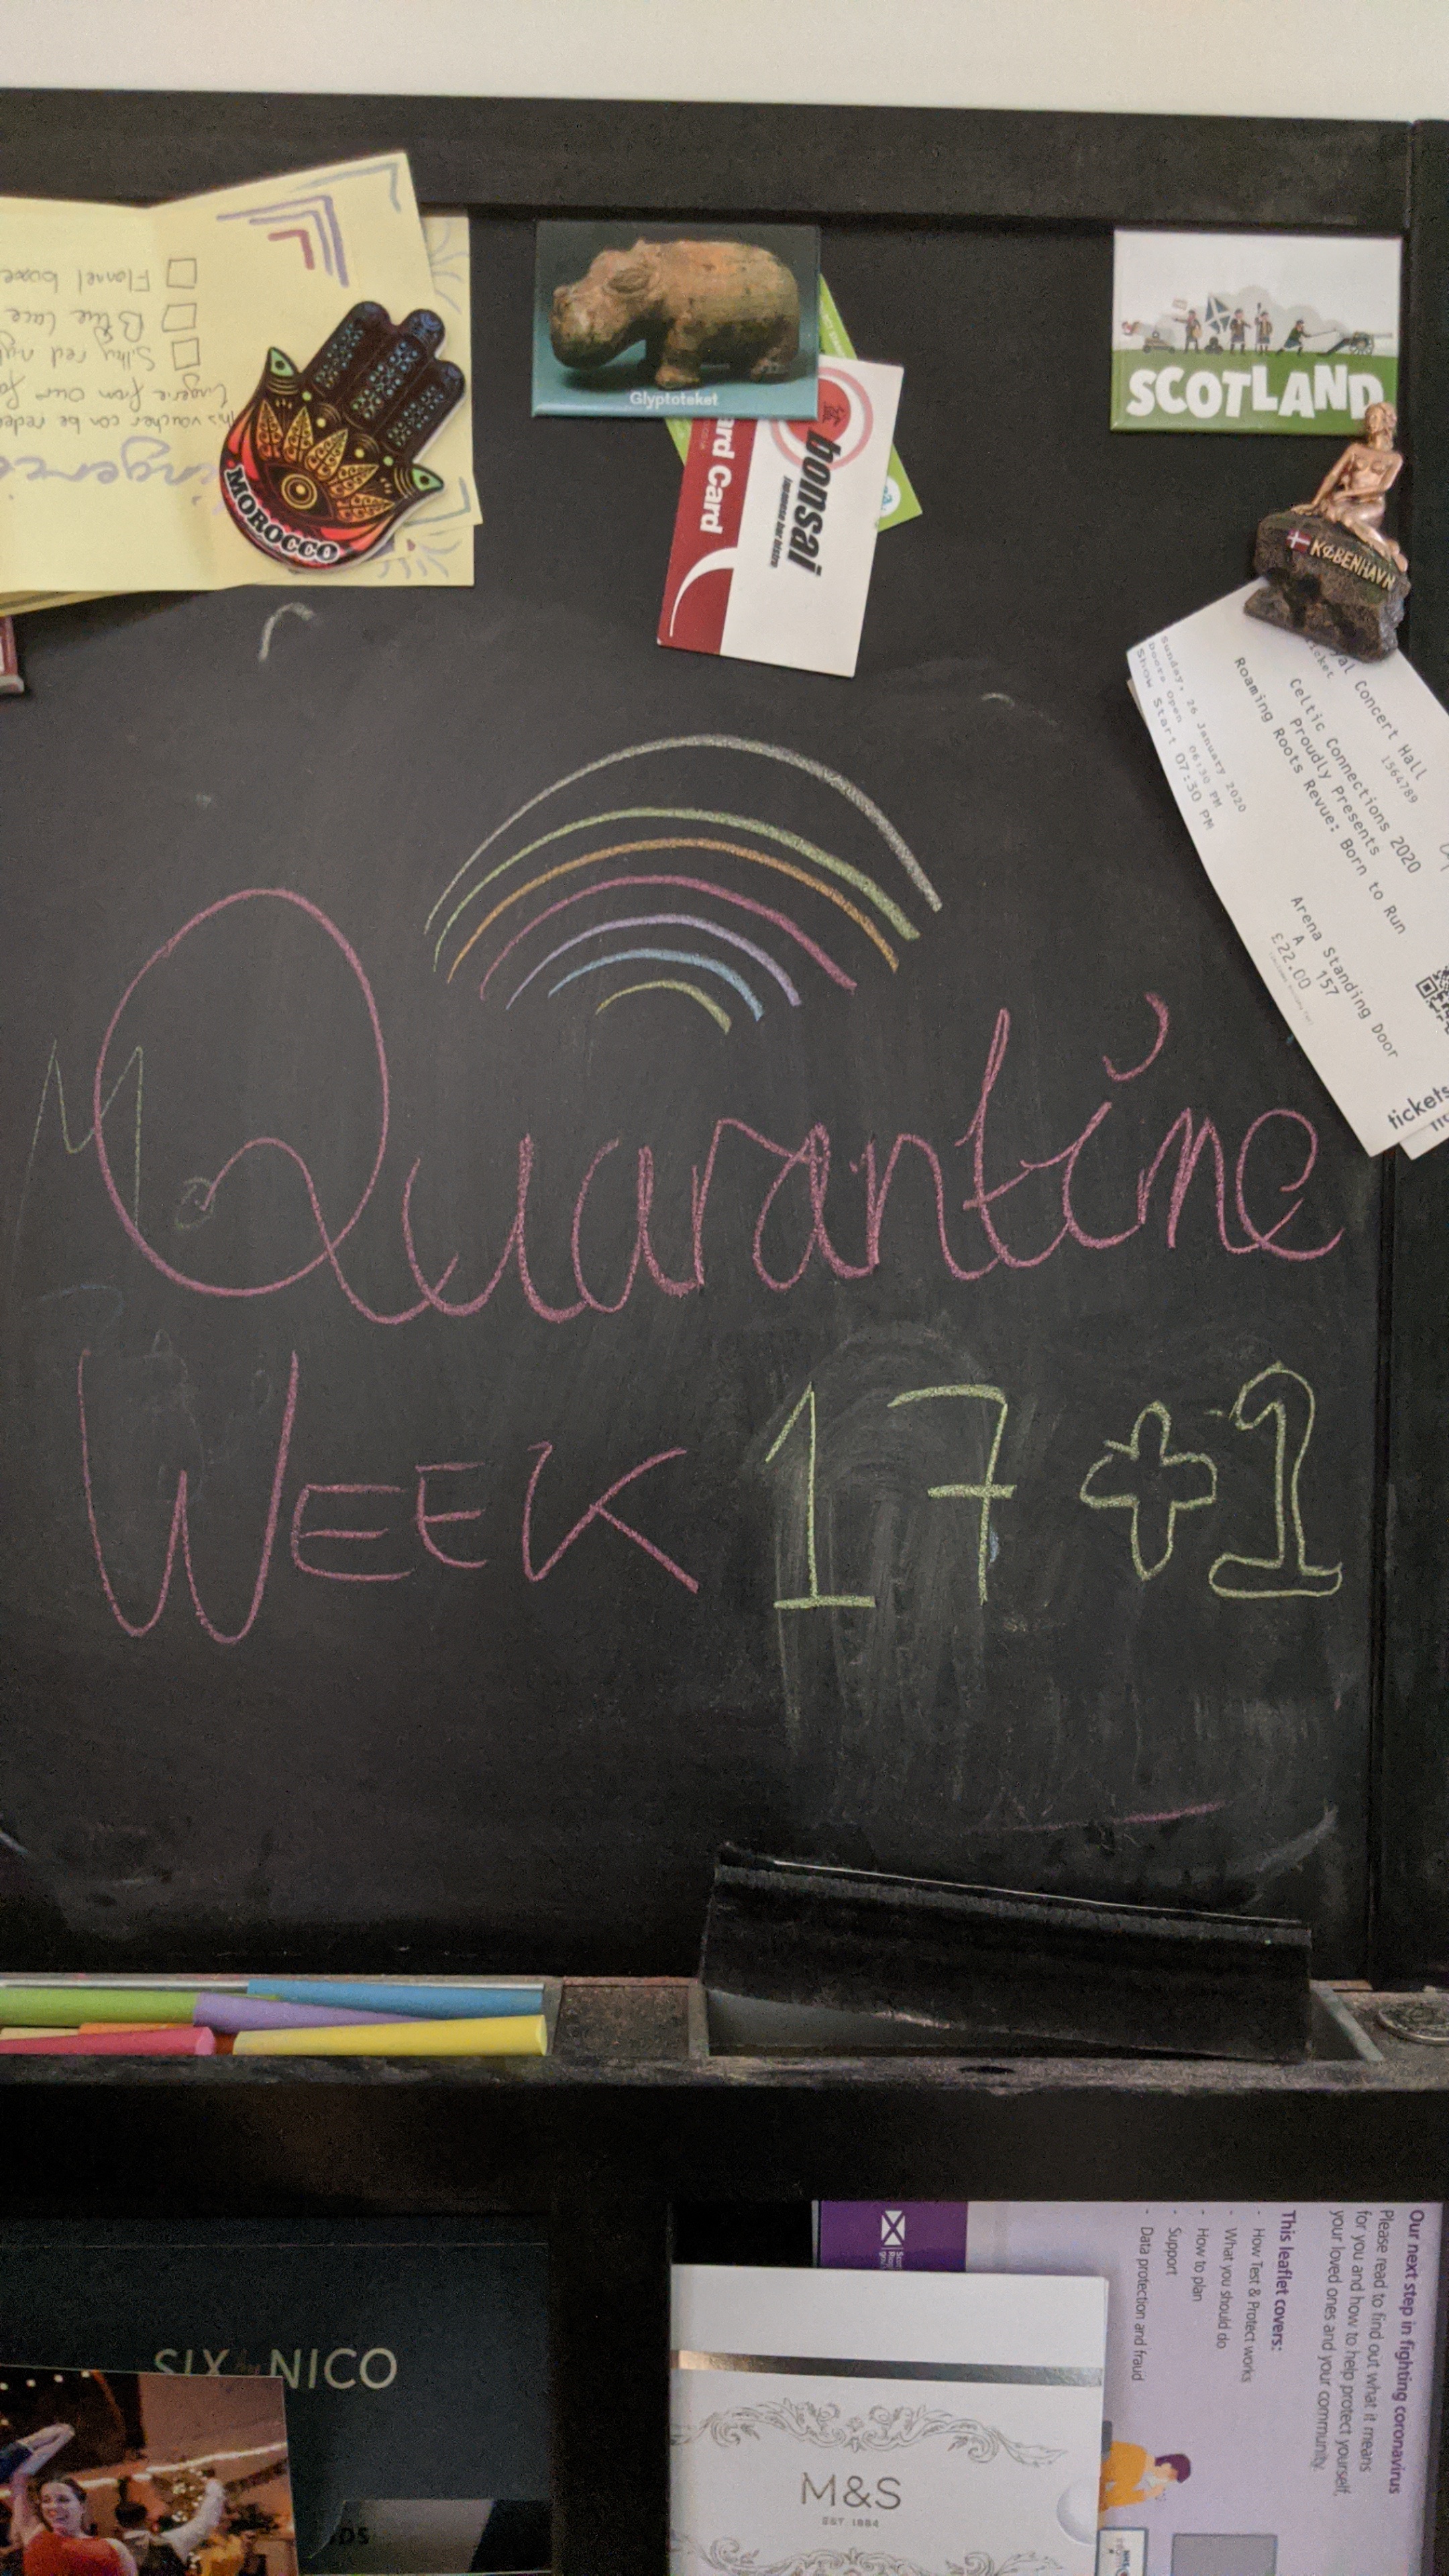 Flannel
Blue lace
Silky red
lingerie from our
this voucher can be
MOROCCO
Glyptoteket
SCOTLAND
KØBENHAVN
ard Card
bonsai
Japanese bar bistro
Concert Hall
1564789
Celtic Connections 2020
Proudly Presents
Roaming Roots Revue: Born to Run
Sunday, 26 January 2020
Doors Open 06:30 PM
Show Start 07:30 PM
Arena Standing Door
A 157
£22.00
tickets
Quarantine
WEEK 17 +1
SIX by NICO
Our next step in fighting coronavirus
Please read to find out what it means
for you and how to help protect yourself,
your loved ones and your community.
This leaflet covers:
- How Test & Protect works
- What you should do
- How to plan
- Support
- Data protection and fraud
M&S
EST 1884